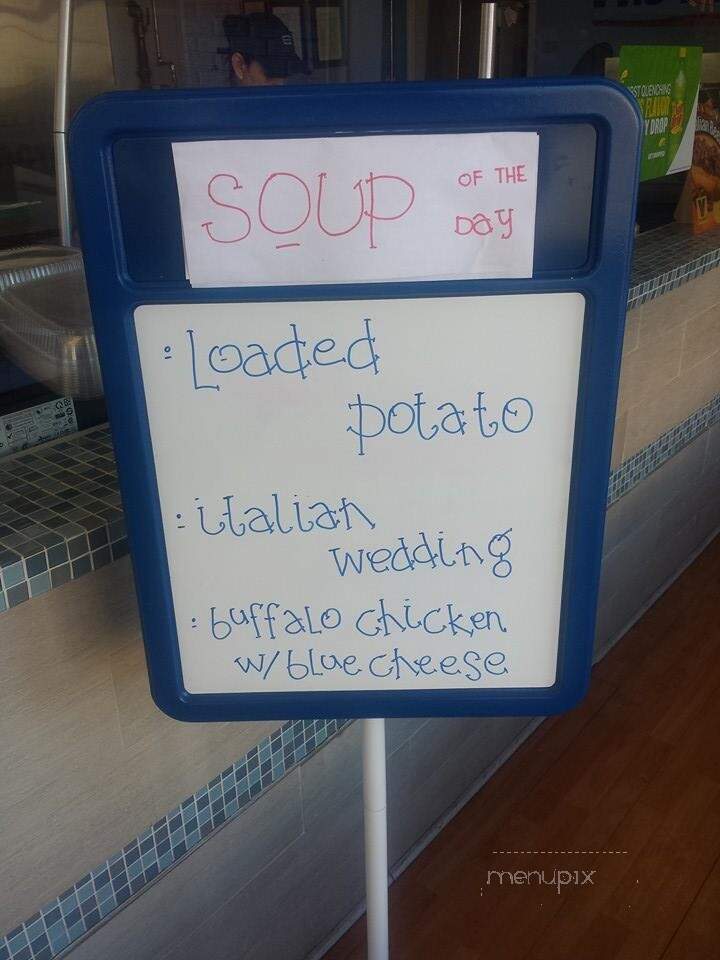 SOUP OF THE
Day
: Loaded
potato
: italian
wedding
: buffalo chicken
w/ blue cheese
FLAVOR
Y DROP
menupix